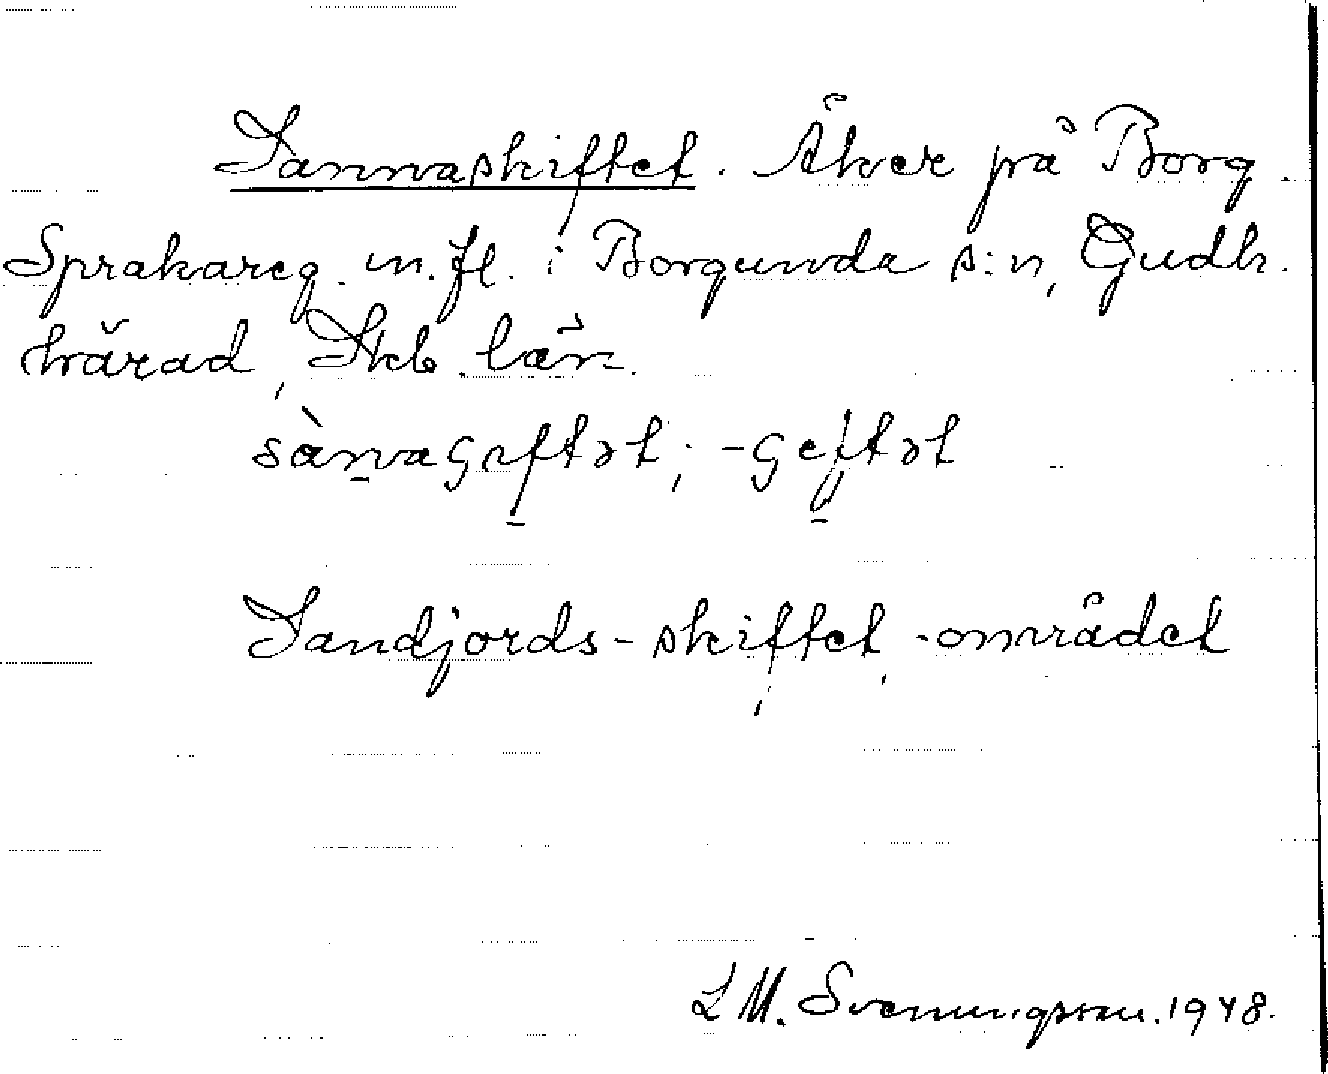 Sannaskiftet. Åker på Borg
Sprakareg. m.fl. i Borgunda s:n, Gudh.
härad, Skb. län.
sànnaɢɪftət; -ɢeftət
Sandjords-skiftet, -området
L M. Svenungsson. 1948.